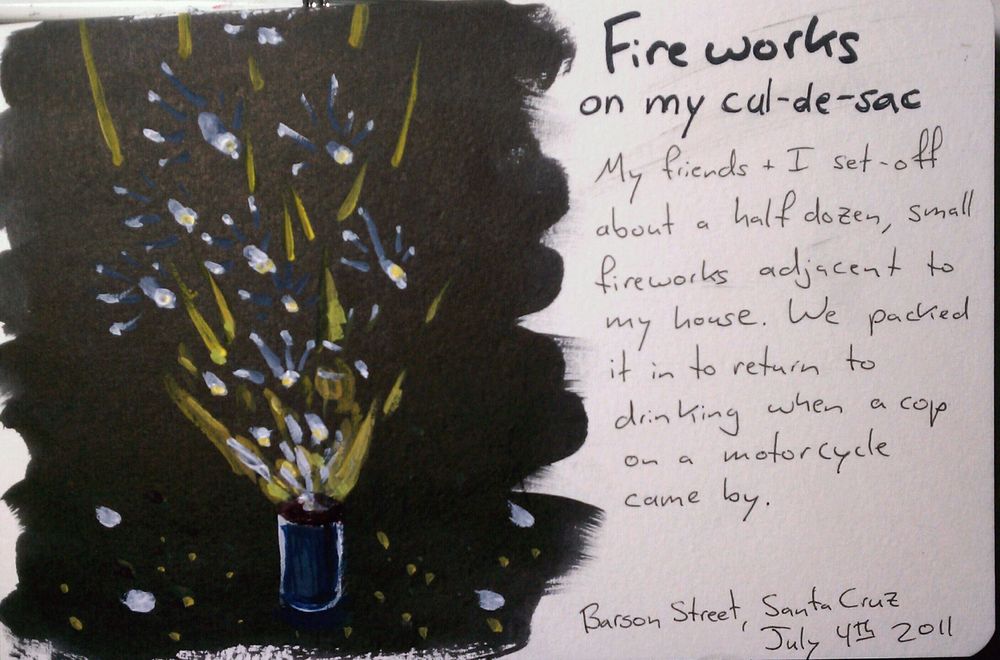 Fireworks
on my cul-de-sac
My friends + I set-off
about a half dozen, small
fireworks adjacent to
my house. We packed
it in to return to
drinking when a cop
on a motorcycle
came by.
Barson Street, Santa Cruz
July 4th 2011